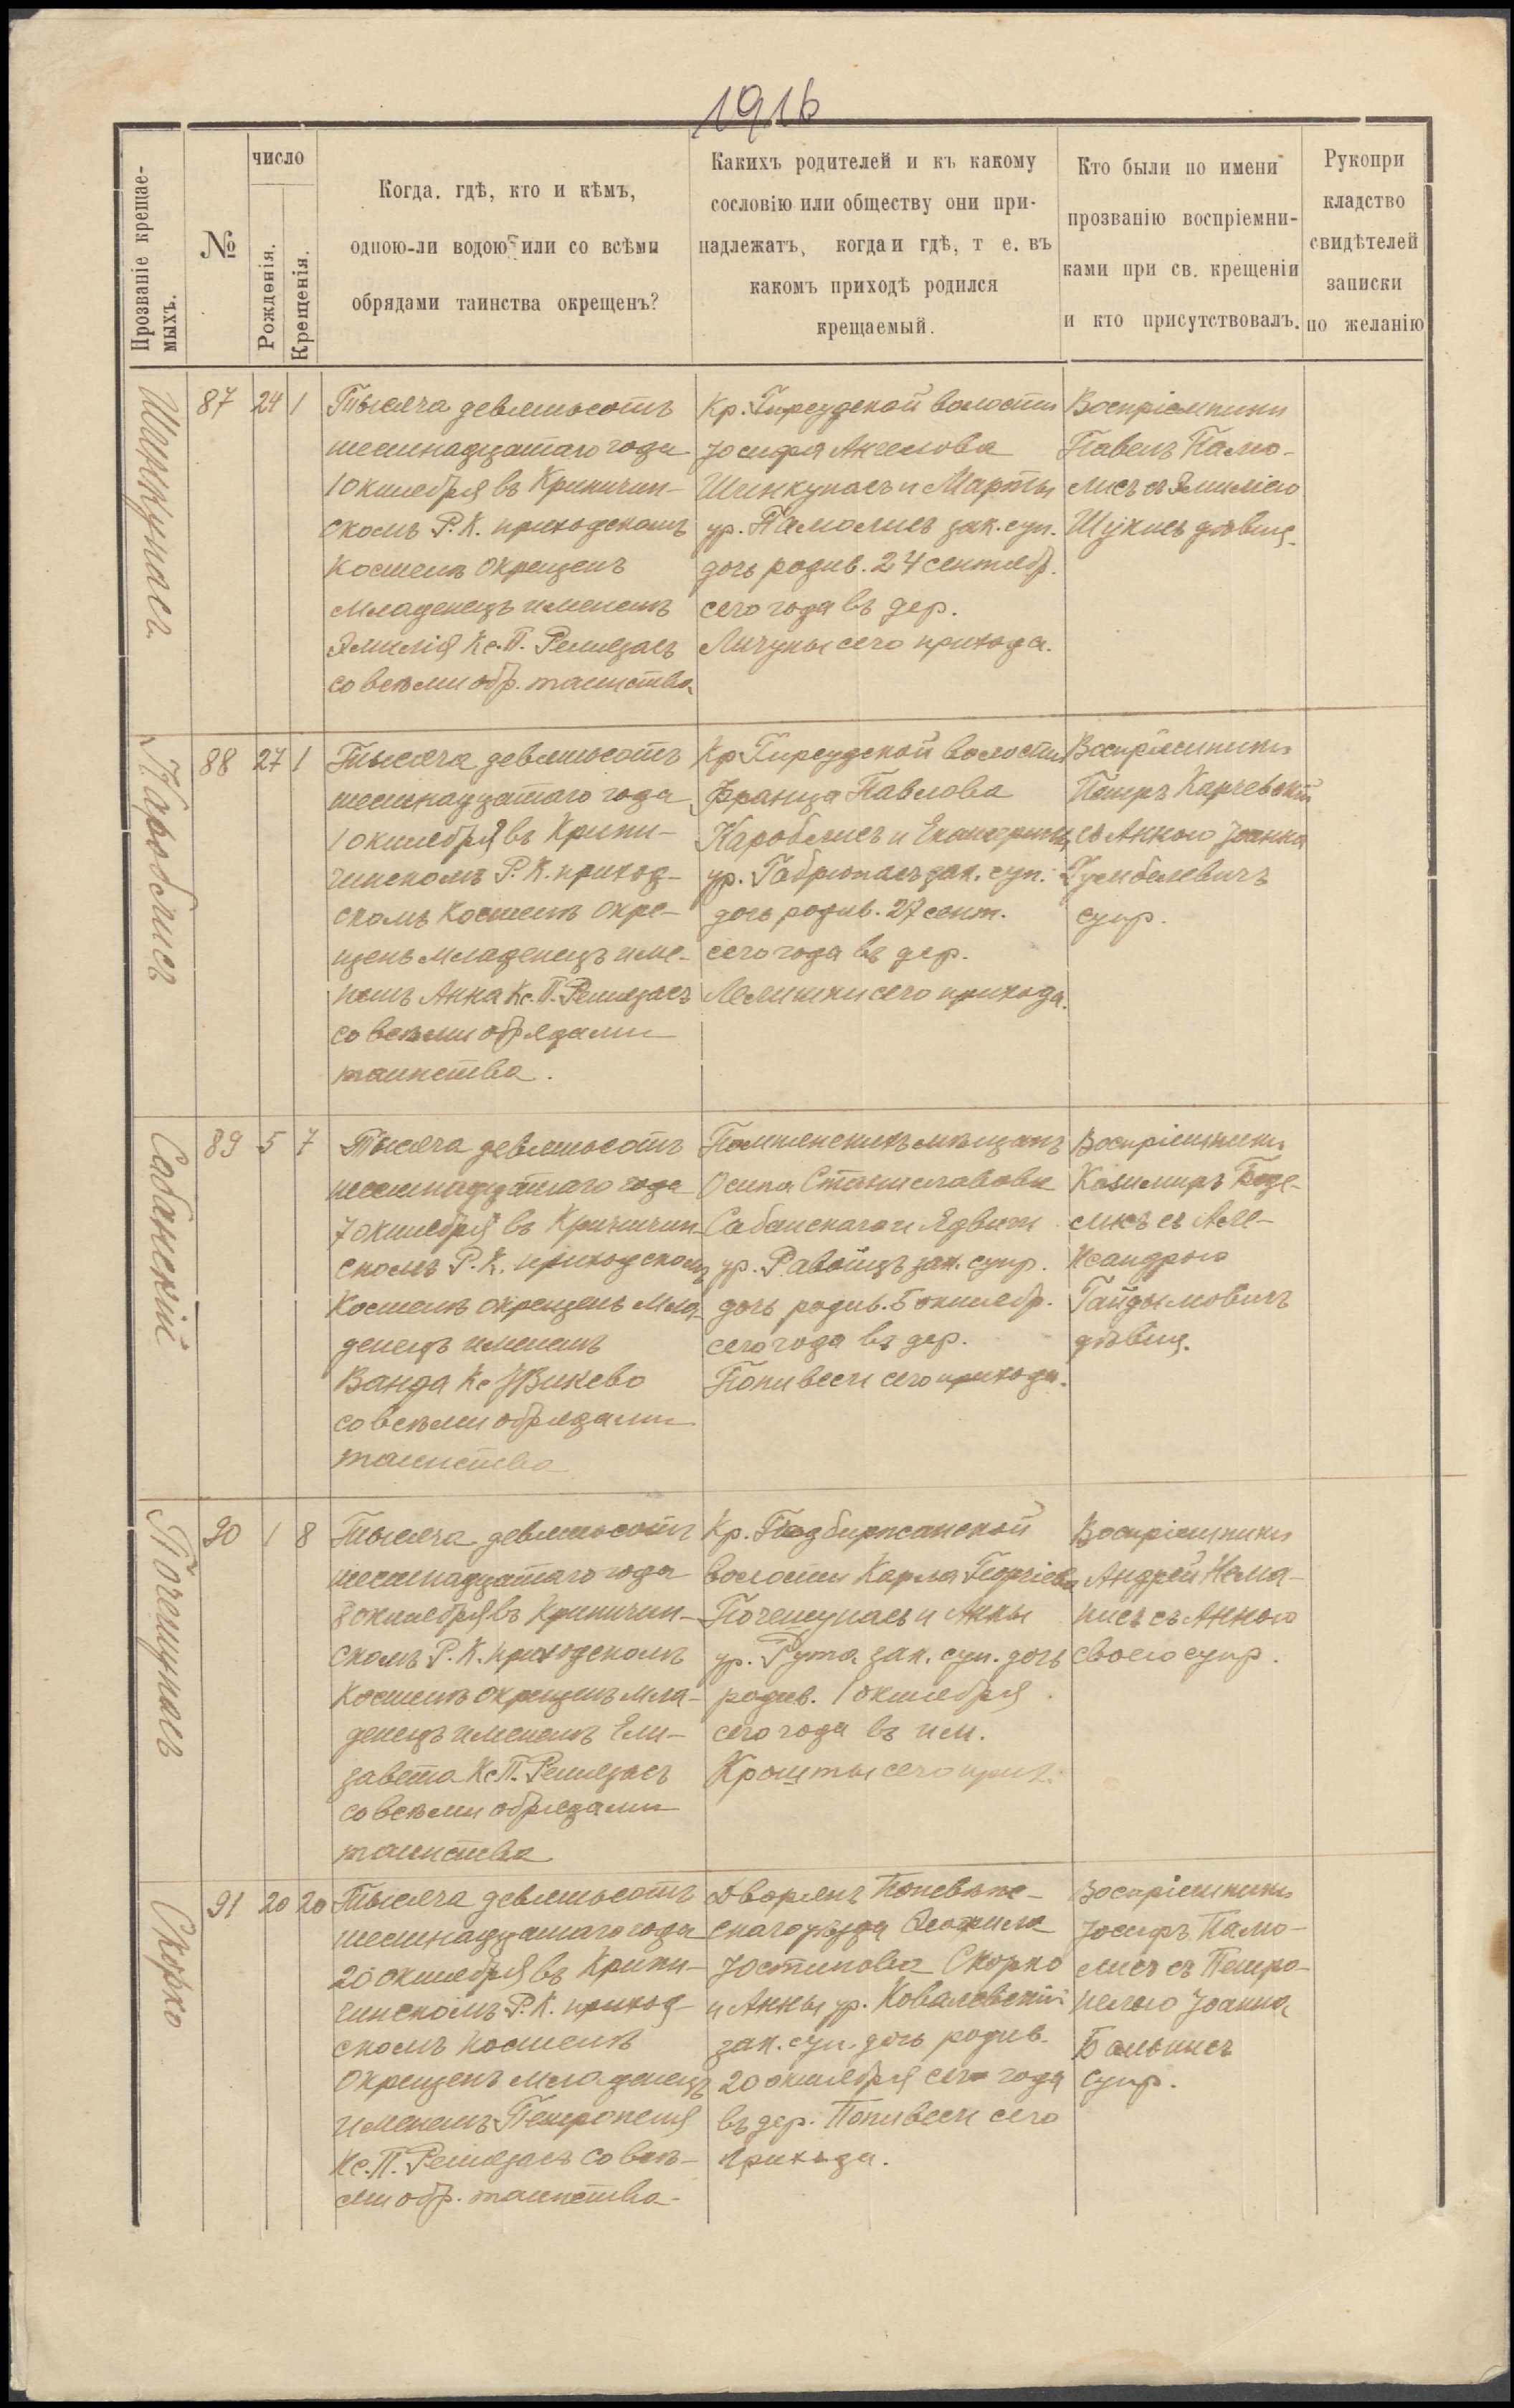 1916
Прозваніе крещае-
мыхъ.
№
число
Рожденія.
Крещенія.
Когда, гдѣ, кто и кѣмъ,
одною-ли водою или со всѣми
обрядами таинства окрещенъ?
Какихъ родителей и къ какому
сословію или обществу они при-
надлежатъ, когда и гдѣ, т е. въ
какомъ приходѣ родился
крещаемый.
Кто были по имени
прозванію воспріемни-
ками при св. крещеніи
и кто присутствовалъ.
Рукопри
кладство
свидѣтелей
записки
по желанію
Шинкунасъ
87 24 1
Тысяча девятьсотъ
шестнадцатаго года
1 октября въ Криничин-
скомъ Р. К. приходскомъ
Костелѣ окрещенъ
младенецъ именемъ
Эмилія Кс. П. Ремезасъ
со всѣми обр. таинства
Кр. Гирсудской волости
Іосифа Ангелова
Шинкунасъ и Марты
ур. Памолисъ зак. суп.
дочь родив. 24 сентябр.
сего года въ дер.
Личуны сего прихода.
Воспріемники
Павелъ Памо-
лисъ съ Эмиліею
Шукисъ дѣвиц.
Кароблисъ
88 27 1
Тысяча девятьсотъ
шестнадцатаго года
1 октября въ Крини-
чинскомъ Р. К. приход-
скомъ Костелѣ окре-
щенъ младенецъ име-
немъ Анна Кс. П. Ремезасъ
со всѣми обрядами
таинства.
Кр. Гирсудской волости
Франца Павлова
Кароблисъ и Екатерины
ур. Габрюнасъ зак. суп.
дочь родив. 27 сент.
сего года въ дер.
Мелишки сего прихода.
Воспріемники
Петръ Карчевскій
съ Анною Іоанна
Гумбелевичъ
супр.
Сабанскій
89 5 7
Тысяча девятьсотъ
шестнадцатаго года
7 октября въ Криничин-
скомъ Р. К. приходскомъ
Костелѣ окрещенъ мла-
денецъ именемъ
Ванда Кс
со всѣми обрядами
таинства
мѣщанъ
Осипа Станиславова
Сабанскаго и Ядвиги
ур. Равойцъ зак. супр.
дочь родив. 5 октябр.
сего года въ дер.
Попивеси сего прихода.
Воспріемники
Казимиръ
съ Але-
ксандрою
Гайдымовичъ
дѣвиц.
Почешунасъ
90 1 8
Тысяча девятьсотъ
шестнадцатаго года
8 октября въ Криничин-
скомъ Р. К. приходскомъ
Костелѣ окрещенъ мла-
денецъ именемъ Ели-
завета Кс П. Ремезасъ
со всѣми обрядами
таинства
Кр. Подбиржанской
волости Карла Георгіева
Почешунасъ и Анны
ур. Рута зак. суп. дочь
родив. 1 октября
сего года въ им.
Крошты сего прих.
Воспріемники
Андрей Нема-
нисъ съ Анною
своею супр.
Скорко
91 20 20
Тысяча девятьсотъ
шестнадцатаго года
20 октября въ Крини-
чинскомъ Р. К. приход-
скомъ Костелѣ
окрещенъ младенецъ
именемъ Петронеля
Кс. П. Ремезасъ со всѣ-
ми обр. таинства.
Дворянъ Поневѣже-
скаго уѣзда
Юстинова Скорко
и Анны ур. Ковалевскій
зак. суп. дочь родив.
20 октября сего года
въ дер. Попивеси сего
прихода.
Воспріемники
Іосифъ Памо-
лисъ съ Петро-
нелею Іоанна
супр.